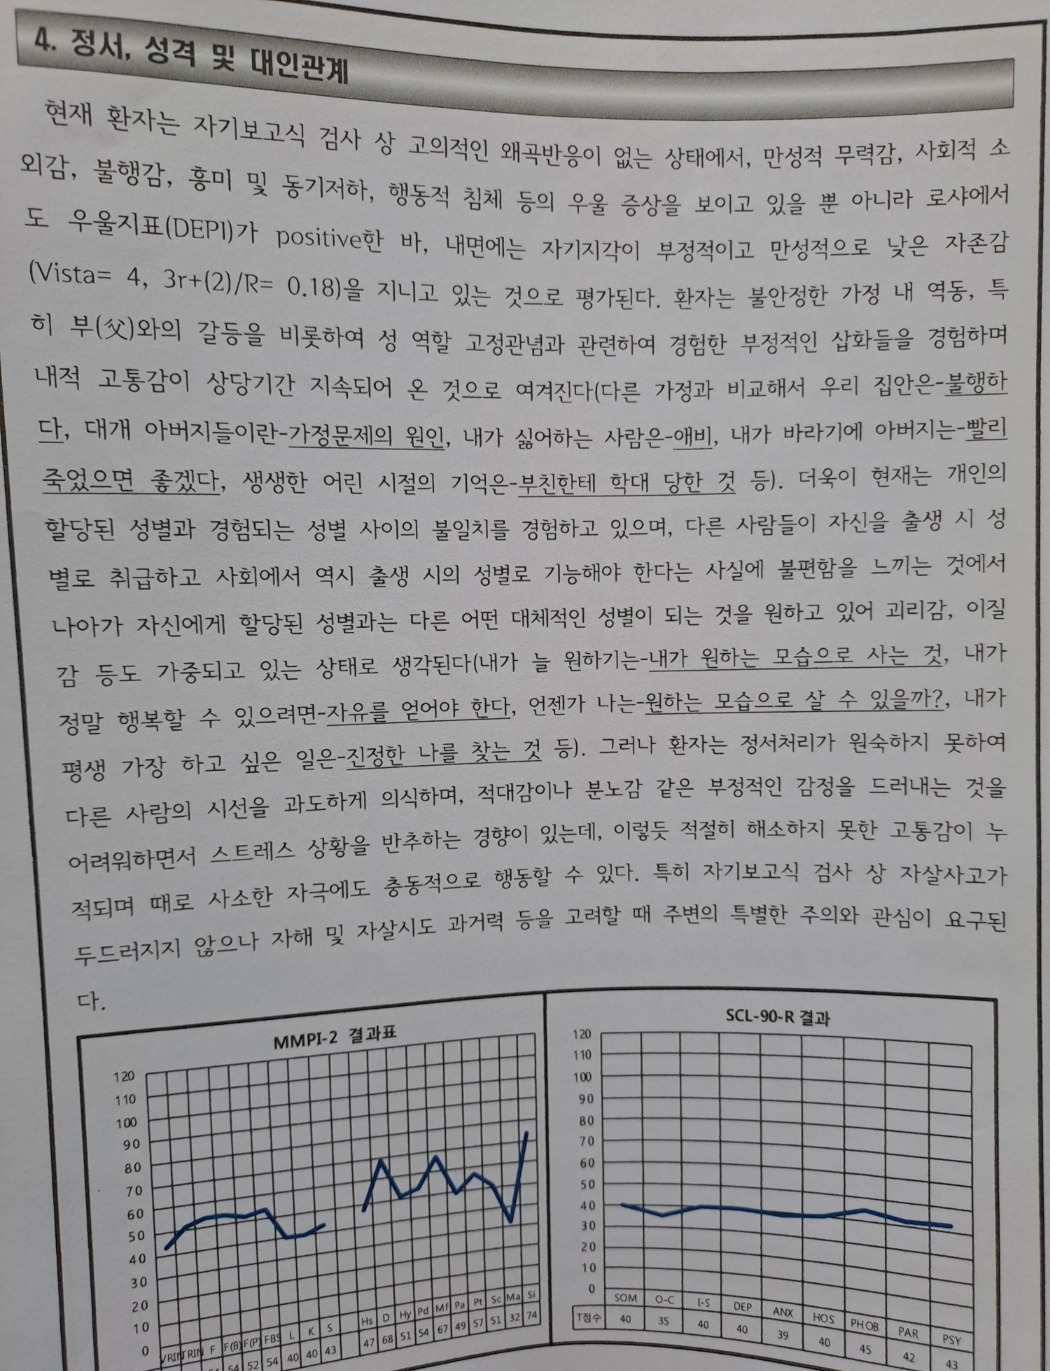 4. 정서, 성격 및 대인관계
현재 환자는 자기보고식 검사 상 고의적인 왜곡반응이 없는 상태에서, 만성적 무력감, 사회적 소
외감, 불행감, 흥미 및 동기저하, 행동적 침체 등의 우울 증상을 보이고 있을 뿐 아니라 로샤에서
도 우울지표(DEPI)가 positive한 바, 내면에는 자기지각이 부정적이고 만성적으로 낮은 자존감
(Vista= 4, 3r+(2)/R= 0.18)을 지니고 있는 것으로 평가된다. 환자는 불안정한 가정 내 역동, 특
히 부(父)와의 갈등을 비롯하여 성 역할 고정관념과 관련하여 경험한 부정적인 삽화들을 경험하며
내적 고통감이 상당기간 지속되어 온 것으로 여겨진다(다른 가정과 비교해서 우리 집안은-불행하
다, 대개 아버지들이란-가정문제의 원인, 내가 싫어하는 사람은-애비, 내가 바라기에 아버지는-빨리
죽었으면 좋겠다, 생생한 어린 시절의 기억은-부친한테 학대 당한 것 등). 더욱이 현재는 개인의
할당된 성별과 경험되는 성별 사이의 불일치를 경험하고 있으며, 다른 사람들이 자신을 출생 시 성
별로 취급하고 사회에서 역시 출생 시의 성별로 기능해야 한다는 사실에 불편함을 느끼는 것에서
나아가 자신에게 할당된 성별과는 다른 어떤 대체적인 성별이 되는 것을 원하고 있어 괴리감, 이질
감 등도 가중되고 있는 상태로 생각된다(내가 늘 원하기는-내가 원하는 모습으로 사는 것, 내가
정말 행복할 수 있으려면-자유를 얻어야 한다, 언젠가 나는-원하는 모습으로 살 수 있을까?, 내가
평생 가장 하고 싶은 일은-진정한 나를 찾는 것 등). 그러나 환자는 정서처리가 원숙하지 못하여
다른 사람의 시선을 과도하게 의식하며, 적대감이나 분노감 같은 부정적인 감정을 드러내는 것을
어려워하면서 스트레스 상황을 반추하는 경향이 있는데, 이렇듯 적절히 해소하지 못한 고통감이 누
적되며 때로 사소한 자극에도 충동적으로 행동할 수 있다. 특히 자기보고식 검사 상 자살사고가
두드러지지 않으나 자해 및 자살시도 과거력 등을 고려할 때 주변의 특별한 주의와 관심이 요구된
다.
MMPI-2 결과표
120
110
100
90
80
70
60
50
40
30
20
10
0
VRIN TRIN F F(B) F(P) FBS L K S Hs D Hy Pd Mf Pa Pt Sc Ma Si
54 52 54 40 40 43 47 68 51 54 67 49 57 51 32 74
SCL-90-R 결과
120
110
100
90
80
70
60
50
40
30
20
10
0
SOM O-C I-S DEP ANX HOS PHOB PAR PSY
T점수 40 35 40 40 39 40 45 42 43